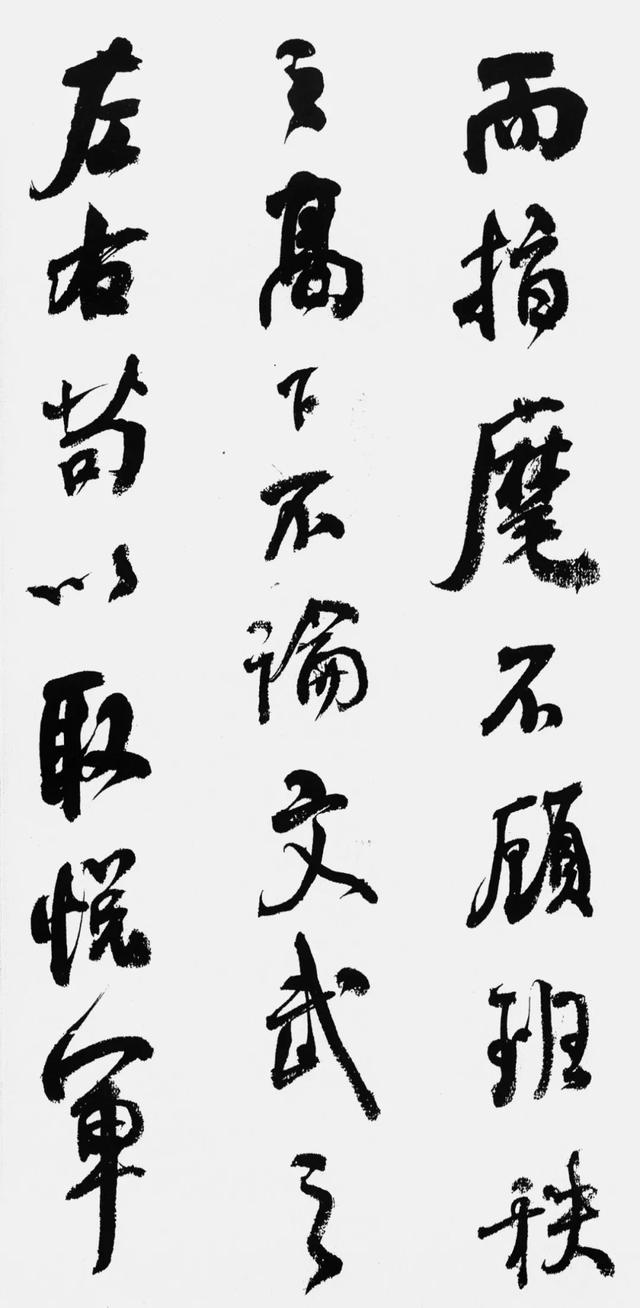 而指麾不顧班秩
之高下不論文武之
左右苟以取悦軍